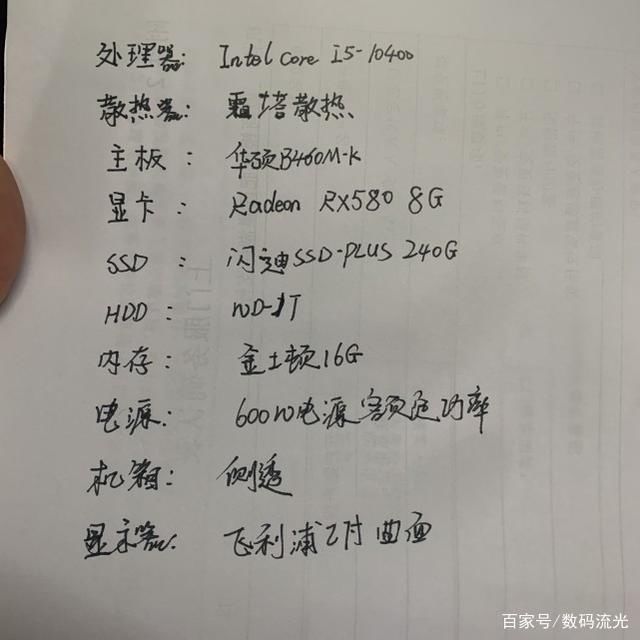 处理器: Intel Core I5-10400
散热器: 霜塔散热
主板: 华硕B460M-K
显卡: Radeon RX580 8G
SSD: 闪迪SSD-PLUS 240G
HDD: WD-1T
内存: 金士顿16G
电源: 600W电源 额定功率
机箱: 侧透
显示器: 飞利浦 寸曲面
百家号/数码流光